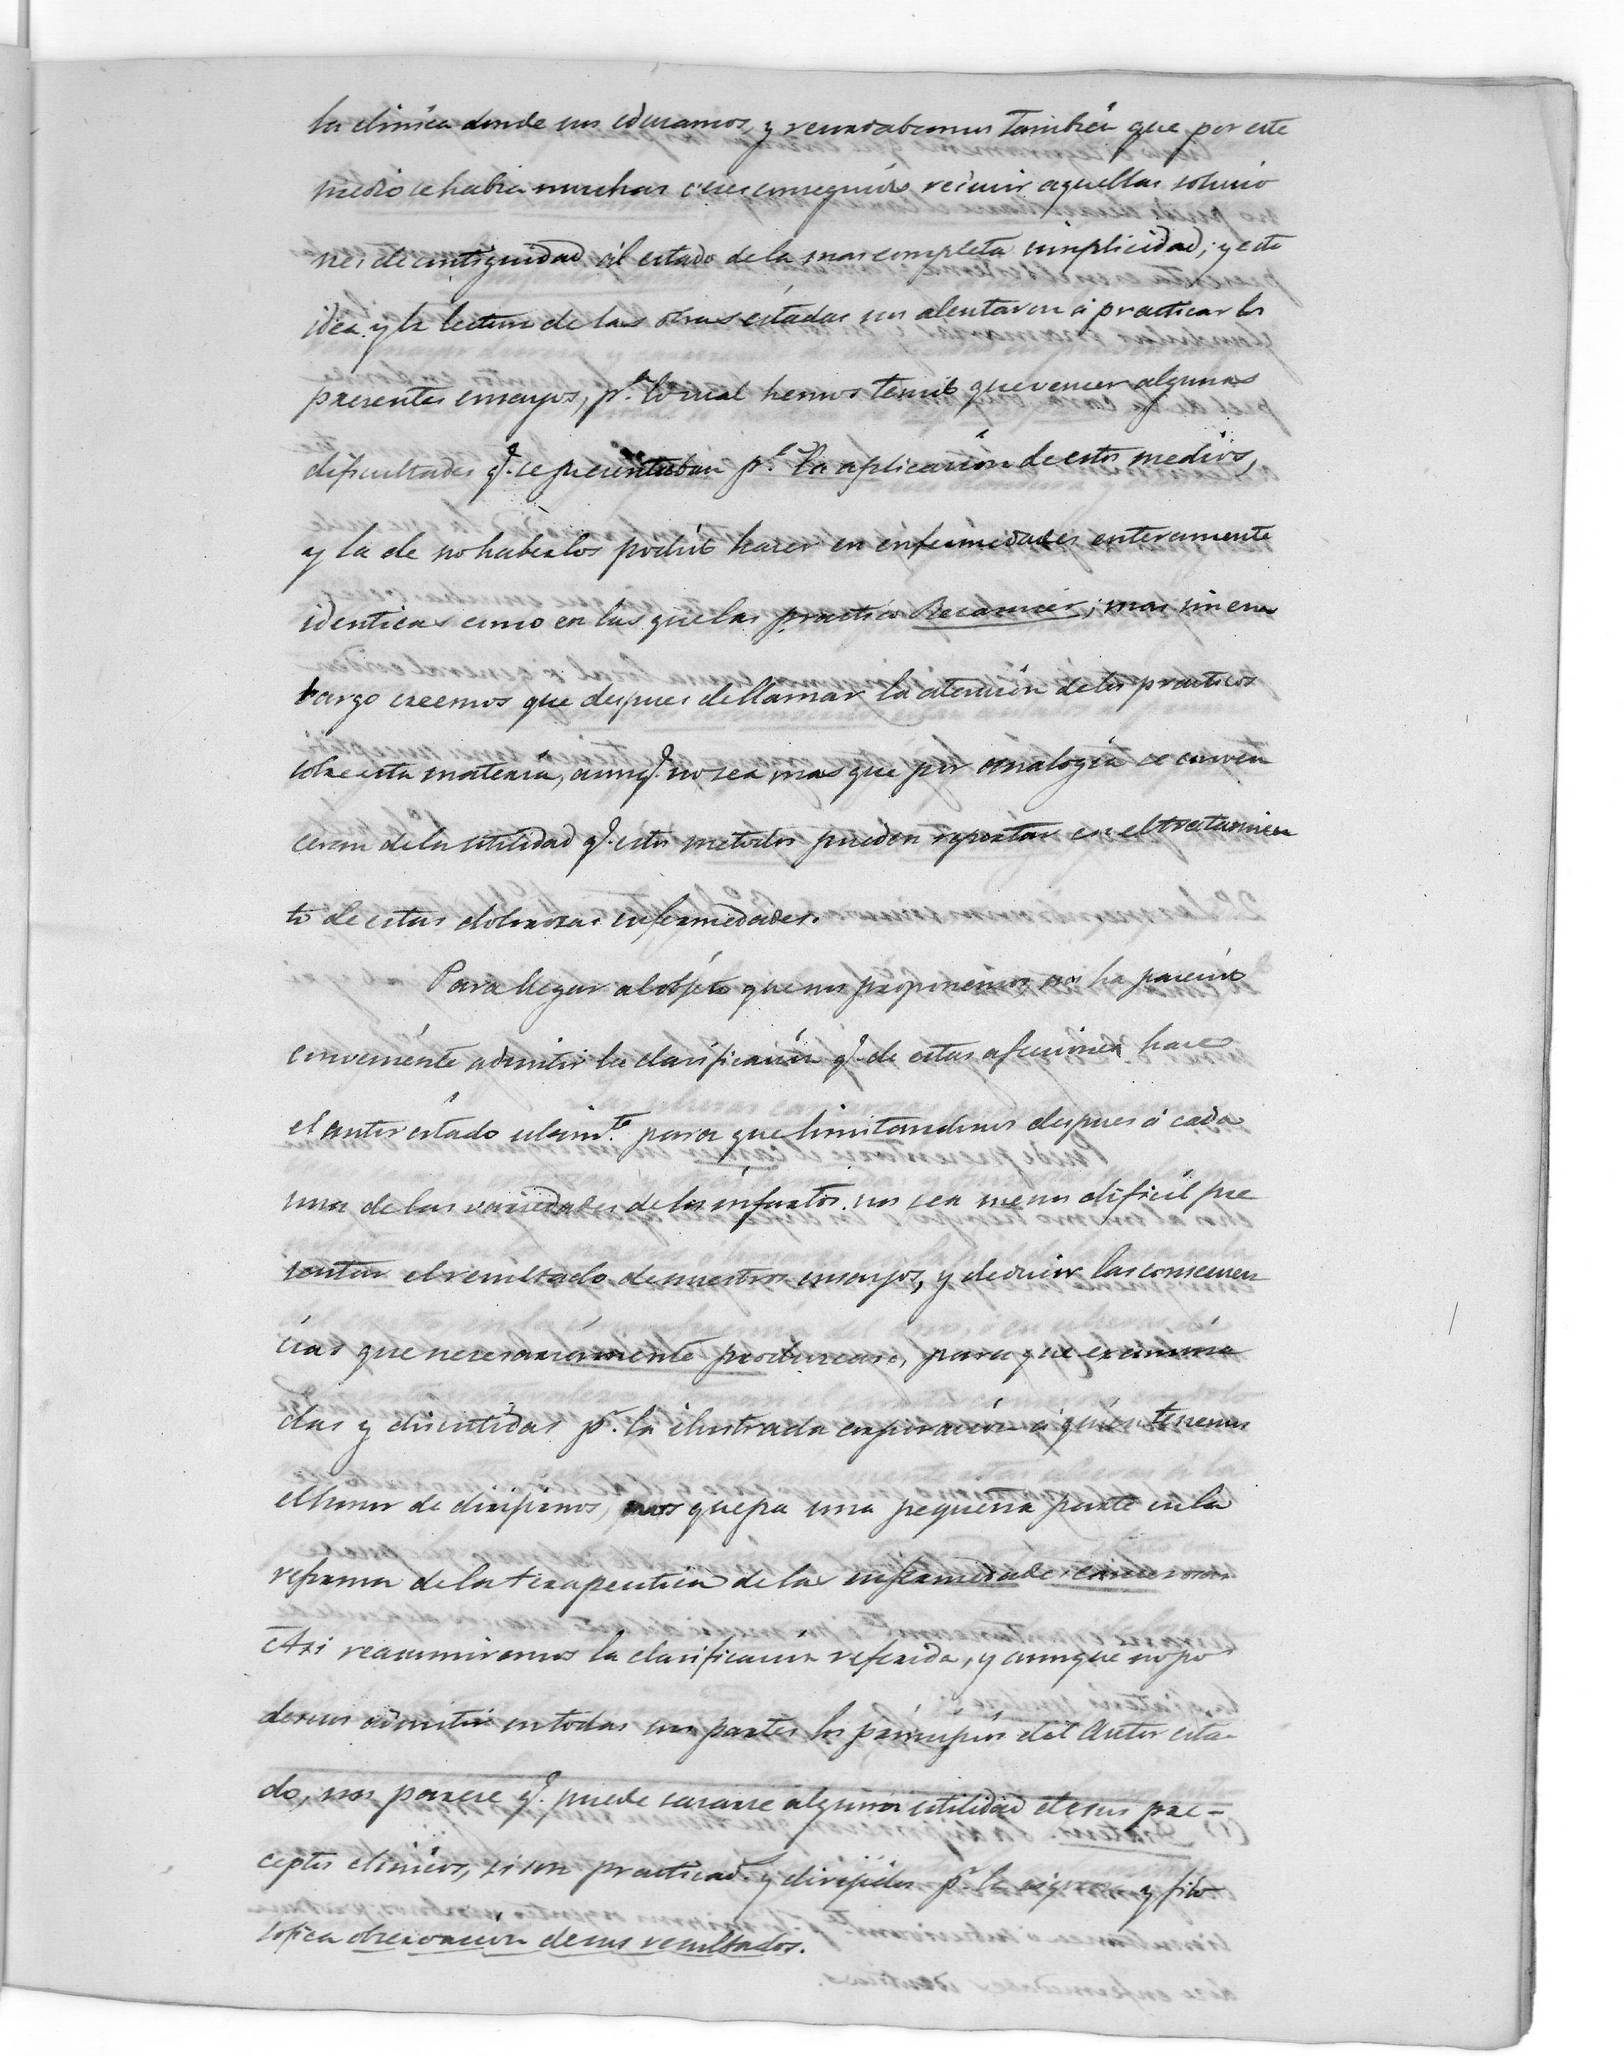 la clinica donde nos educamos, y recordabamos tambien que por este
medio se habia muchas veces conseguido reducir aquellas solucio
nes de contiguidad al estado de la mas completa simplicidad; y esta
idea y la lectura de las obras citadas nos alentaron á practicar los
presentes ensayos, pª. lo cual hemos tenido que vencer algunas
dificultades q.e se presentaban pª. la aplicacion de estos medios,
y la de no haberlos podido hacer en enfermedades enteramente
identicas como en las que las practicó Recamier; mas sin em
bargo creemos que despues de llamar la atencion de los practicos
sobre esta materia, aunq.e no sea mas que por analogia se conven
ceran de la utilidad q.e estos metodos pueden reportar en el tratamien
to de estas dolorosas enfermedades.
Para llegar al objeto que nos proponemos, nos ha parecido
conveniente admitir la clasificacion q.e de estas afecciones hace
el autor citado ultim.te para que limitandonos despues á cada
una de las variedades de los infartos nos sea menos dificil pre
sentar el resultado de nuestros ensayos, y deducir las consecuen
cias que necesariamente produzcan, para que examina
das y discutidas p.r la ilustrada corporacion á quien tenemos
el honor de dirijirnos, nos quepa una pequeña parte en la
reforma de la terapeutica de las enfermedades cancerosas
Asi reasumiremos la clasificacion referida, y aunque no po
demos admitir en todas sus partes los principios del Autor cita-
do, nos parece q.e puede sacarse alguna utilidad de sus pre-
ceptos clinicos, si son practicad.s y dirijidos p.r la rigurosa y filo
sofica observacion de sus resultados.